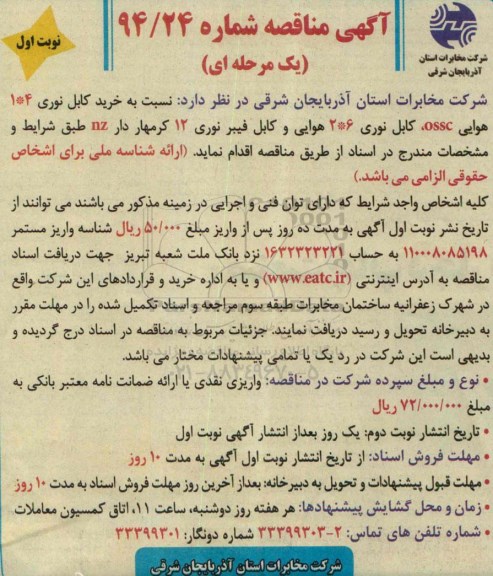 آگهی مناقصه شماره ۹۴/۲۴
(یک مرحله ای)
نوبت اول
شرکت مخابرات استان
آذربایجان شرقی
شرکت مخابرات استان آذربایجان شرقی در نظر دارد: نسبت به خرید کابل نوری ۴*۱
هوایی ossc، کابل نوری ۶*۲ هوایی و کابل فیبر نوری ۱۲ کرمهار دار nz طبق شرایط و
مشخصات مندرج در اسناد از طریق مناقصه اقدام نماید. (ارائه شناسه ملی برای اشخاص
حقوقی الزامی می باشد.)
کلیه اشخاص واجد شرایط که دارای توان فنی و اجرایی در زمینه مذکور می باشند می توانند از
تاریخ نشر نوبت اول آگهی به مدت ده روز پس از واریز مبلغ ۵۰/۰۰۰ ریال شناسه واریز مستمر
۱۱۰۰۰۸۰۸۵۱۹۸ به حساب ۱۶۳۲۳۲۳۲۲۱ نزد بانک ملت شعبه تبریز جهت دریافت اسناد
مناقصه به آدرس اینترنتی (www.eatc.ir) و یا به اداره خرید و قراردادهای این شرکت واقع
در شهرک زعفرانیه ساختمان مخابرات طبقه سوم مراجعه و اسناد تکمیل شده را در مهلت مقرر
به دبیرخانه تحویل و رسید دریافت نمایند. جزئیات مربوط به مناقصه در اسناد درج گردیده و
بدیهی است این شرکت در رد یک یا تمامی پیشنهادات مختار می باشد.
• نوع و مبلغ سپرده شرکت در مناقصه: واریزی نقدی یا ارائه ضمانت نامه معتبر بانکی به
مبلغ ۷۲/۰۰۰/۰۰۰ ریال
• تاریخ انتشار نوبت دوم: یک روز بعداز انتشار آگهی نوبت اول
• مهلت فروش اسناد: از تاریخ انتشار نوبت اول آگهی به مدت ۱۰ روز
• مهلت قبول پیشنهادات و تحویل به دبیرخانه: بعداز آخرین روز مهلت فروش اسناد به مدت ۱۰ روز
• زمان و محل گشایش پیشنهادها: هر هفته روز دوشنبه، ساعت ۱۱، اتاق کمسیون معاملات
• شماره تلفن های تماس: ۲-۳۳۳۹۹۳۰۳ شماره دونگار: ۳۳۳۹۹۳۰۱
شرکت مخابرات استان آذربایجان شرقی